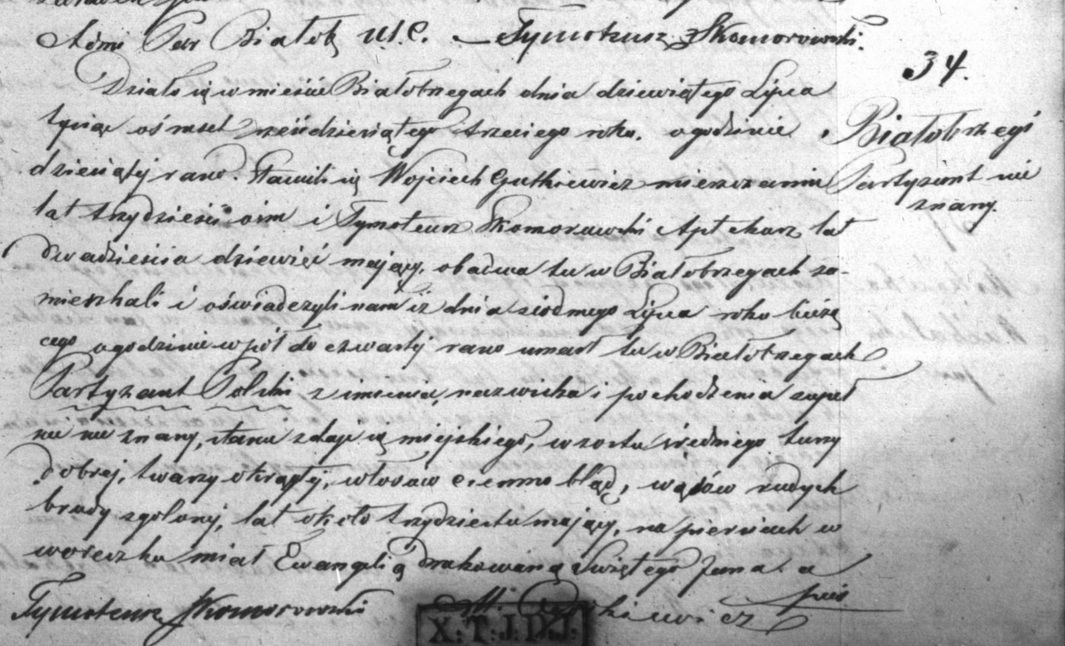 Admi Par Białob U.S.C. — Tymoteusz Skomorowski.
34.
Białobrzegi
Partyzant nie
znany.
Działo się w mieście Białobrzegach dnia dziewiątego Lipca
tysiąc ośmset sześćdziesiątego trzeciego roku. o godzinie
dziesiąty rano. Stawili się Wojciech Gutkiewicz mieszczanin
lat trzydzieści ośm i Tymoteusz Skomorowski Aptekarz lat
dwadzieścia dziewięć mający, obadwa tu w Białobrzegach za-
mieszkali i oświadczyli nam iż dnia siódmego Lipca roku bieżą
cego o godzinie w pół do czwarty rano umarł tu w Białobrzegach
Partyzant Polski z imienia, nazwiska i pochodzenia zupeł
nie nie znany, stanu zdaje się miejskiego, wzrostu średniego tuszy
dobrej, twarzy okrągły, włosów ciemno bląd, wąsów rudych
brody zgolonej, lat około trzydziestu mający, na piersiach w
woreczku miał Ewangelią drukowaną Świętego Jana. a
pies
Tymoteusz Skomorowski
X: T.J.D.J.